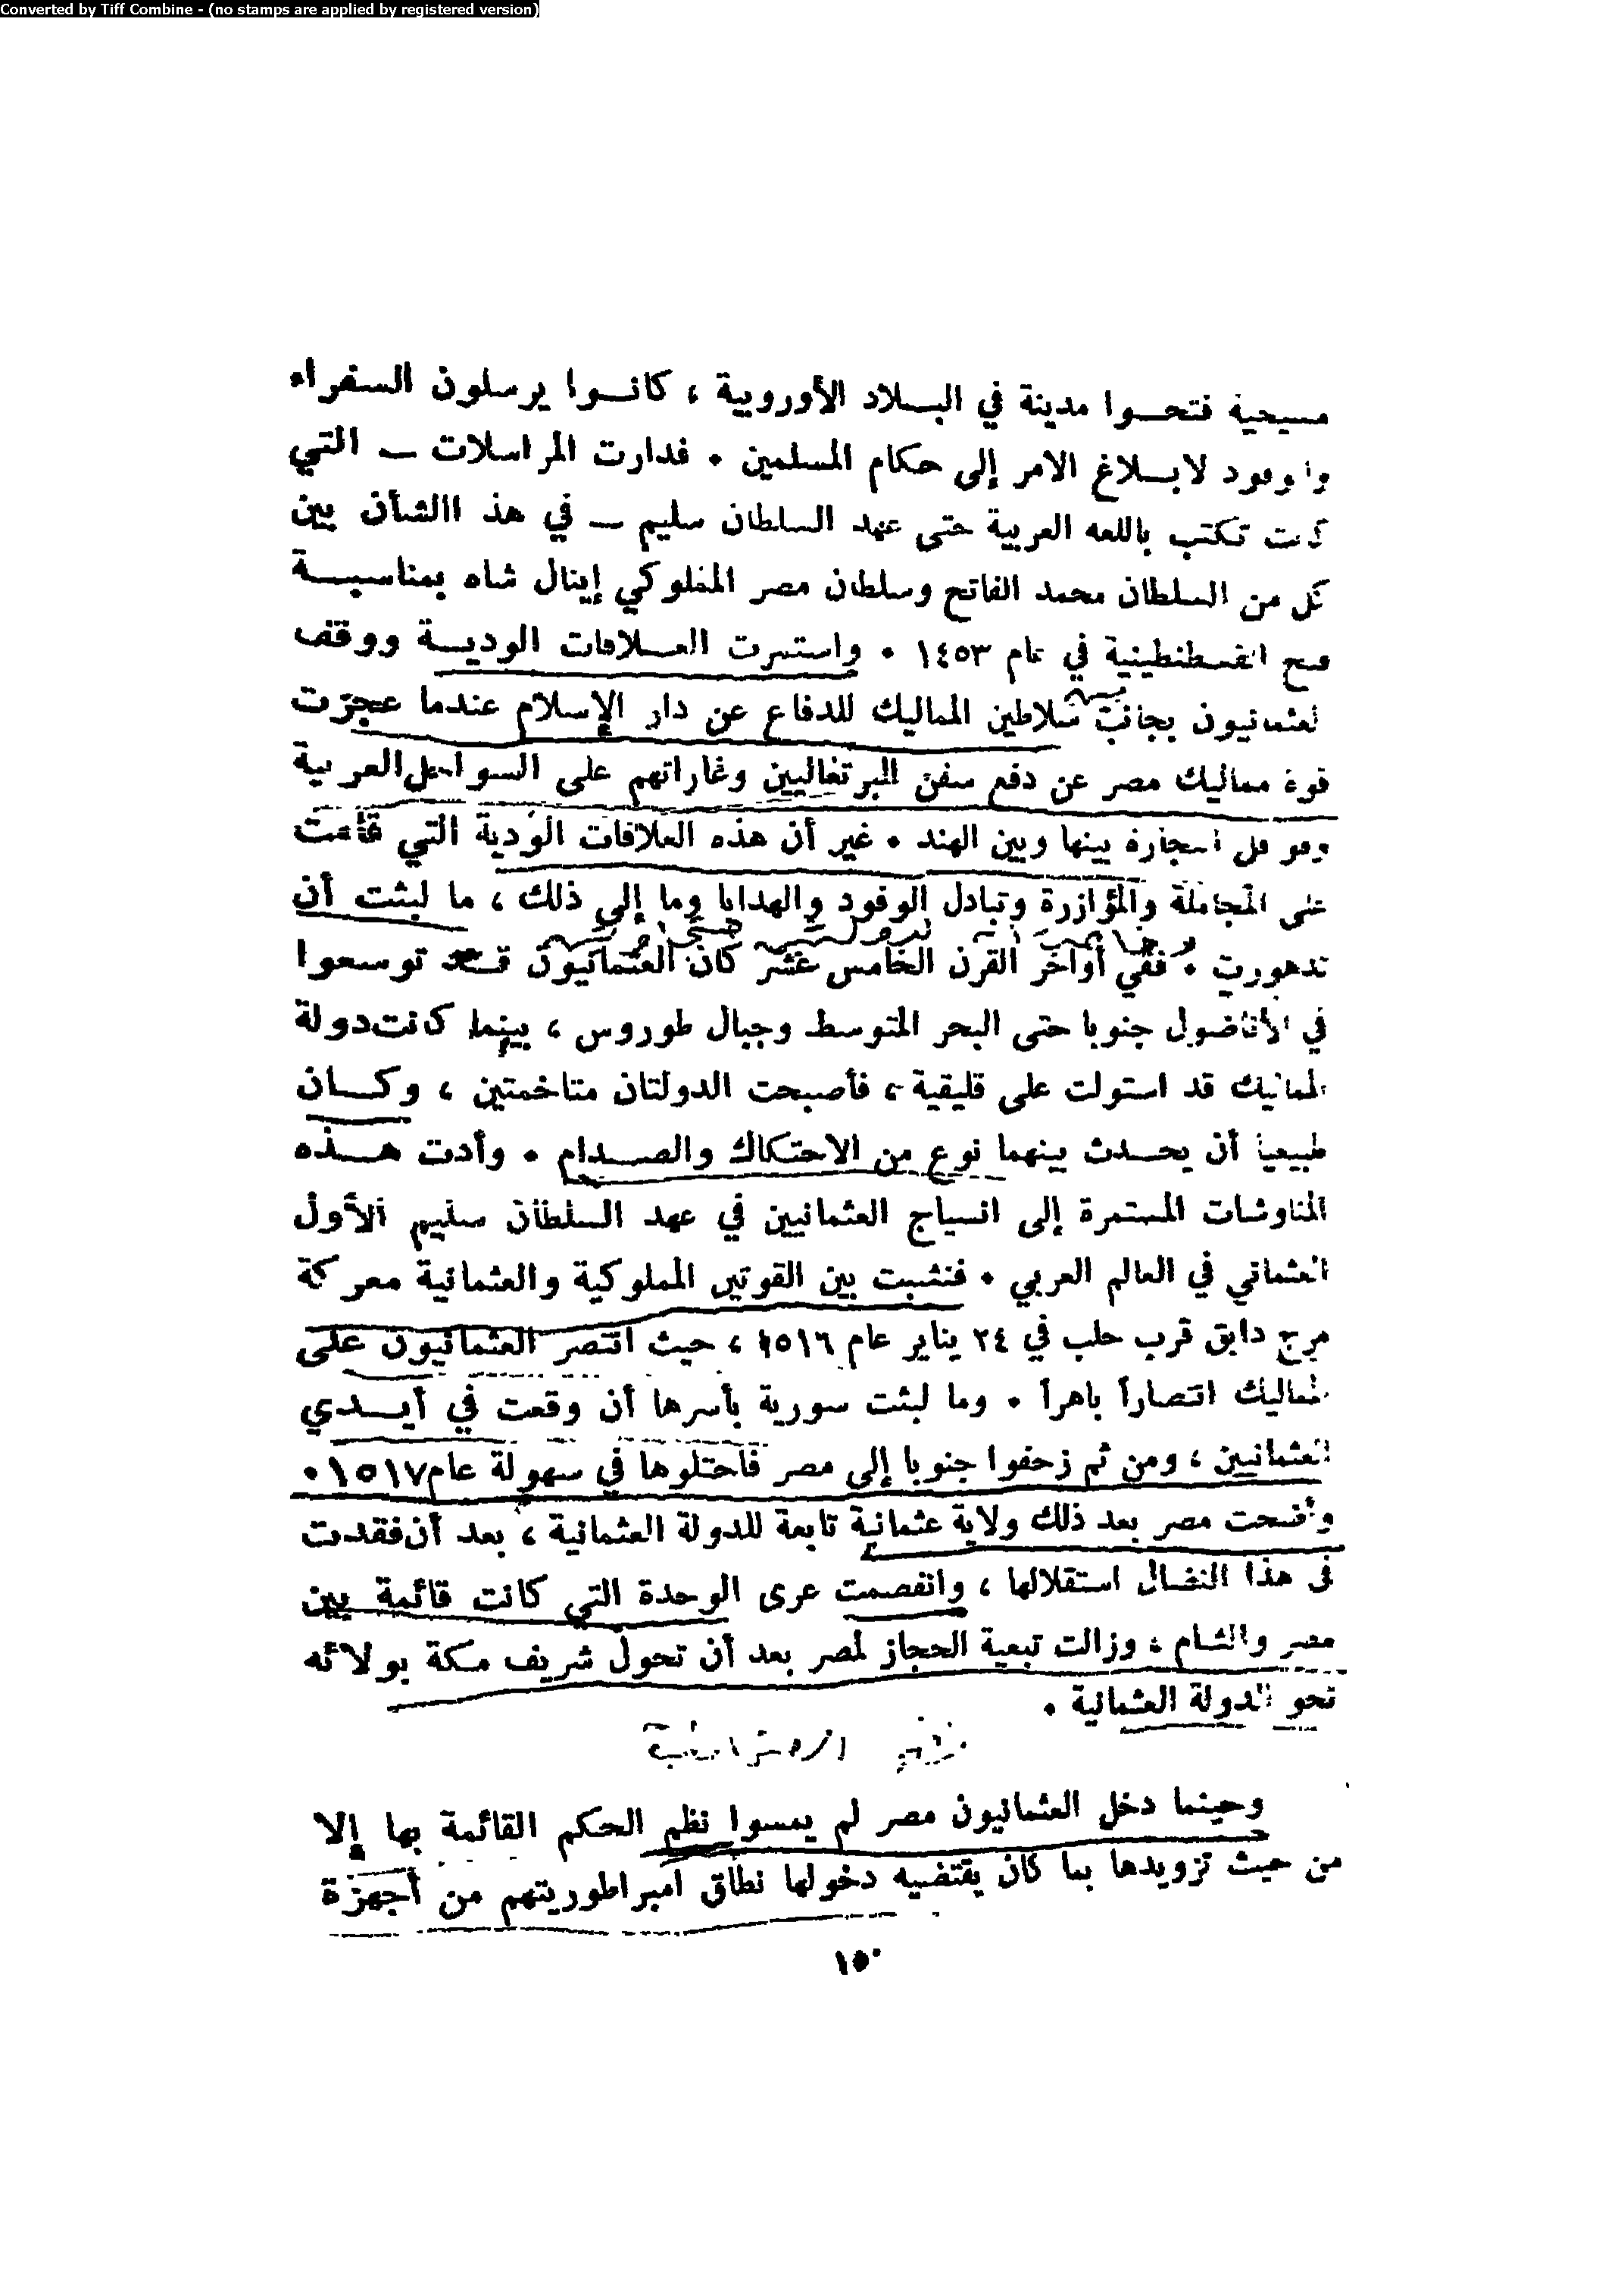 Converted by Tiff Combine - (no stamps are applied by registered version)
مسيحية فتحوا مدينة في البلاد الأوروبية ، كانوا يرسلون السفراء
والوفود لابلاغ الامر إلى حكام المسلمين . فدارت المراسلات – التي
كانت تكتب باللغه العربية حتى عهد السلطان سليم – في هذ االشأن بين
كل من السلطان محمد الفاتح وسلطان مصر المملوكي إينال شاه بمناسبة
فتح القسطنطينية في عام ١٤٥٣ . واستمرت العلاقات الودية ووقف
العثمانيون بجانب سلاطين المماليك للدفاع عن دار الإسلام عندما عجزت
قوة مماليك مصر عن دفع سفن البرتغاليين وغاراتهم على السواحل العربية
وقوافل التجارة بينها وبين الهند . غير أن هذه العلاقات الودية التي قامت
على المجاملة والمؤازرة وتبادل الوفود والهدايا وما إلى ذلك ، ما لبثت أن
تدهورت . ففي أواخر القرن الخامس عشر كان العثمانيون قد توسعوا
في الأناضول جنوبا حتى البحر المتوسط وجبال طوروس ، بينما كانت دولة
المماليك قد استولت على قليقية ، فأصبحت الدولتان متاخمتين ، وكان
طبيعيا أن يحدث بينهما نوع من الاحتكاك والصدام . وأدت هذه
المناوشات المستمرة إلى انسياح العثمانيين في عهد السلطان سليم الأول
العثماني في العالم العربي . فنشبت بين القوتين المملوكية والعثمانية معركة
مرج دابق قرب حلب في ٢٤ يناير عام ١٥١٦ ، حيث انتصر العثمانيون على
المماليك انتصاراً باهراً . وما لبثت سورية بأسرها أن وقعت في أيدي
العثمانيين ، ومن ثم زحفوا جنوبا إلى مصر فاحتلوها في سهولة عام ١٥١٧ .
وأضحت مصر بعد ذلك ولاية عثمانية تابعة للدولة العثمانية ، بعد أن فقدت
في هذا النضال استقلالها ، وانفصمت عرى الوحدة التي كانت قائمة بين
مصر والشام ، وزالت تبعية الحجاز لمصر بعد أن تحول شريف مكة بولائه
نحو الدولة العثمانية .
وحينما دخل العثمانيون مصر لم يمسوا نظم الحكم القائمة بها إلا
من حيث تزويدها بما كان يقتضيه دخولها نطاق امبراطوريتهم من أجهزة
١٥٠